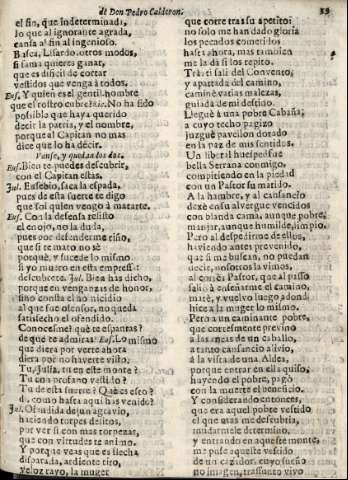 de Don Pedro Calderon. 89
el fin, que indeterminado,
lo que al ignorante agrada,
cansa al fin al ingenioso.
Busca, Lisardo, otros modos,
si fama quieres ganar,
que es dificil de cortar
vestidos que venga à todos.
Eus. Y quien es el gentilhombre
que es rostro cubre No ha sido
possible que haya querido
decir la patria, y el nombre,
porque al Capitan no mas
dice que lo ha de decir.
Vanse, y quedan los dos.
Eus. Bien te puedes descubrir,
con el Capitan estàs.
Jul. Eusebio, saca la espada,
pues de esta suerte te digo
que soi quien vengo à matarte.
Eus. Con la defensa resisto
el enojo, no la duda,
pues por defenderme riño,
que si te mato no sè
porquè, y sucede lo mismo
si yo muero en esta empressa:
descubrete. Jul. Bien has dicho,
porque en venganzas de honor,
sino consta el homicidio
al que fue ofensor, no queda
satisfecho el ofendido.
Conocesme? què te espantas?
de què te admiras? Eus. Lo mismo
que diera por verte ahora
diera por no haverte visto.
Tu, Julia, tu en este monte?
Tu con profano vestido?
Tu de esta suerte? Què es esto?
di, como hasta aqui has venido?
Jul. Ofendida de un agravio,
haciendo torpes delitos,
por ver si con mas torpezas,
que con virtudes te animo.
Y porque veas que es flecha
disparada, ardiente tiro,
veloz rayo, la muger
que corre tras su apetito:
no solo me han dado gloria
los pecados cometidos
hasta ahora, mas tambien
me la dà si los repito.
Tràs ti salì del Convento,
y apartada del camino,
caminè varias malezas,
guiada de mi destino.
Lleguè à una pobre Cabaña;
a cuyo techo pagizo
juzguè pavellon dorado
en la paz de mis sentidos.
Un liberal huesped fue
bella Serrana conmigo,
compitiendo en la piedad
con un Pastor su marido.
A la hambre, y al cansancio
dexè en su alvergue vencidos
con blanda cama, aunque pobre,
manjar, aunque humilde, limpio.
Pero al despedirme de ellos,
haviendo antes prevenido,
que si me buscan, no puedan
decir, nosotros la vimos,
al cortès Pastor, que al passo
saliò à enseñarme el camino,
matè, y vuelvo luego adonde
hice a la muger lo mismo.
Pero a un caminante pobre,
que cortesmente previno
a las ancas de un caballo,
a tanto cansancio alivio,
a la vista de una Aldea,
porque entrar en ella quiso,
huyendo el pobre, pagò
con la muerte el beneficio.
Y considerando entonces,
que era aquel pobre vestido
el que mas me descubria,
mudarmele determino,
y entrando en aqueste monte,
me puse aqueste vestido
de un cazador, cuyo sueño
no imagen, trassunto vivo